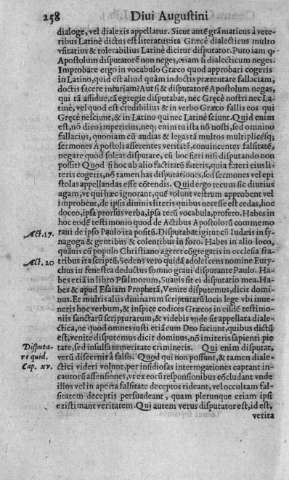 258 Diui Augustini
dialoge, vel dialexis appellatur. Sicut autē grāmaticus à vete-
ribus Latinè dictus est literatus: sic Græcè dialecticus multo
vsitatius & tolerabilius Latinè dicitur disputator. Puto iam q̃
Apostolum disputatorē non neges, etiam si dialecticum neges.
Improbare ergo in vocabulo Græco quod approbari cogeris
in Latino, quid est aliud quàm indoctis præsentare fallaciam,
doctis facere iniuriam? Aut si & disputatorē Apostolum negas,
qui tā assidue, tā egregiè disputat, nec Græcè nosti nec La-
tinè, vel quod est credibilius & in verbo Græco fallis eos qui
Græcè nesciunt, & in Latino qui nec Latinè sciunt. Quid enim
est, nō dicā imperitius, neq; enim ita istā nō nosti, sed omnino
fallacius, quoniam cū audias & legas tā multos multipliciq;
sermones Apostoli asserentes veritatē, conuincentes falsitatē,
negare quod solent disputare, cū hoc fieri nisi disputando non
possit? Quod si hoc ab alio facitatū fueris, quia fateri eius li-
teris cogeris, nō tamen has disputationes, sed sermones vel epi
stolas appellandas esse cōtendis. Quid ergo tecum sic diutius
agam, ve qui hæc ignorant, quæ volunt vestrum approbent vel
improbent, de ipsis diuinis literis quibus necesse est cedas, hoc
doceo, ipsa prorsus verba, ipsa ista vocabula, profero. Habes in
hoc eodē testimonio quod de Actibus Apostolorū commemo
rani de ipso Paulo ita positū. Disputabat igitur cū Iudæis in sy-
Act. 17. nagoga & gentibus & colentibus in foro. Habes in alio loco,
quūm cū populo Christiano ageret cōgregatis in ecclesia fra-
tribus ita scriptū,
Act. 20
ca in fenestra deductus somno graui disputante Paulo. Ha-
bes etiā in libro Psalmorum, Suauis sit ei disputatio mea. Ha-
bes & apud Esaiam Prophetā, Venite disputemus, dicit domi-
nus. Et multis aliis diuinarum scripturarū locis lege vbi inue-
neris hoc verbum, & inspice codices Græcos in eisdē testimo-
niis sanctarū scripturarum, & videbis vnde sit appellata diale-
ctica, ne quod omnes iusti etiā cum Deo faciunt, quibus dictū
est, venite disputemus dicit dominus, nō imiteris sapienti pie
tate, sed insulsa temeritate crimineris. Qui enim disputat,
Disputa-
re quid. verū discernit à falso. Quod qui non possunt, & tamen diale-
Cap. xv. ctici videri volunt, per insidiosas interrogationes captant in-
cautorū assensiones, vt ex eorū responsionibus cōcludant vnde
illos vel in aperta falsitate deceptos rideant, vel occultam fal-
sitatem deceptis persuadeant, quam plerunque etiam ipsi
existimant veritatem. Qui autem verus disputator est, id est,
verita